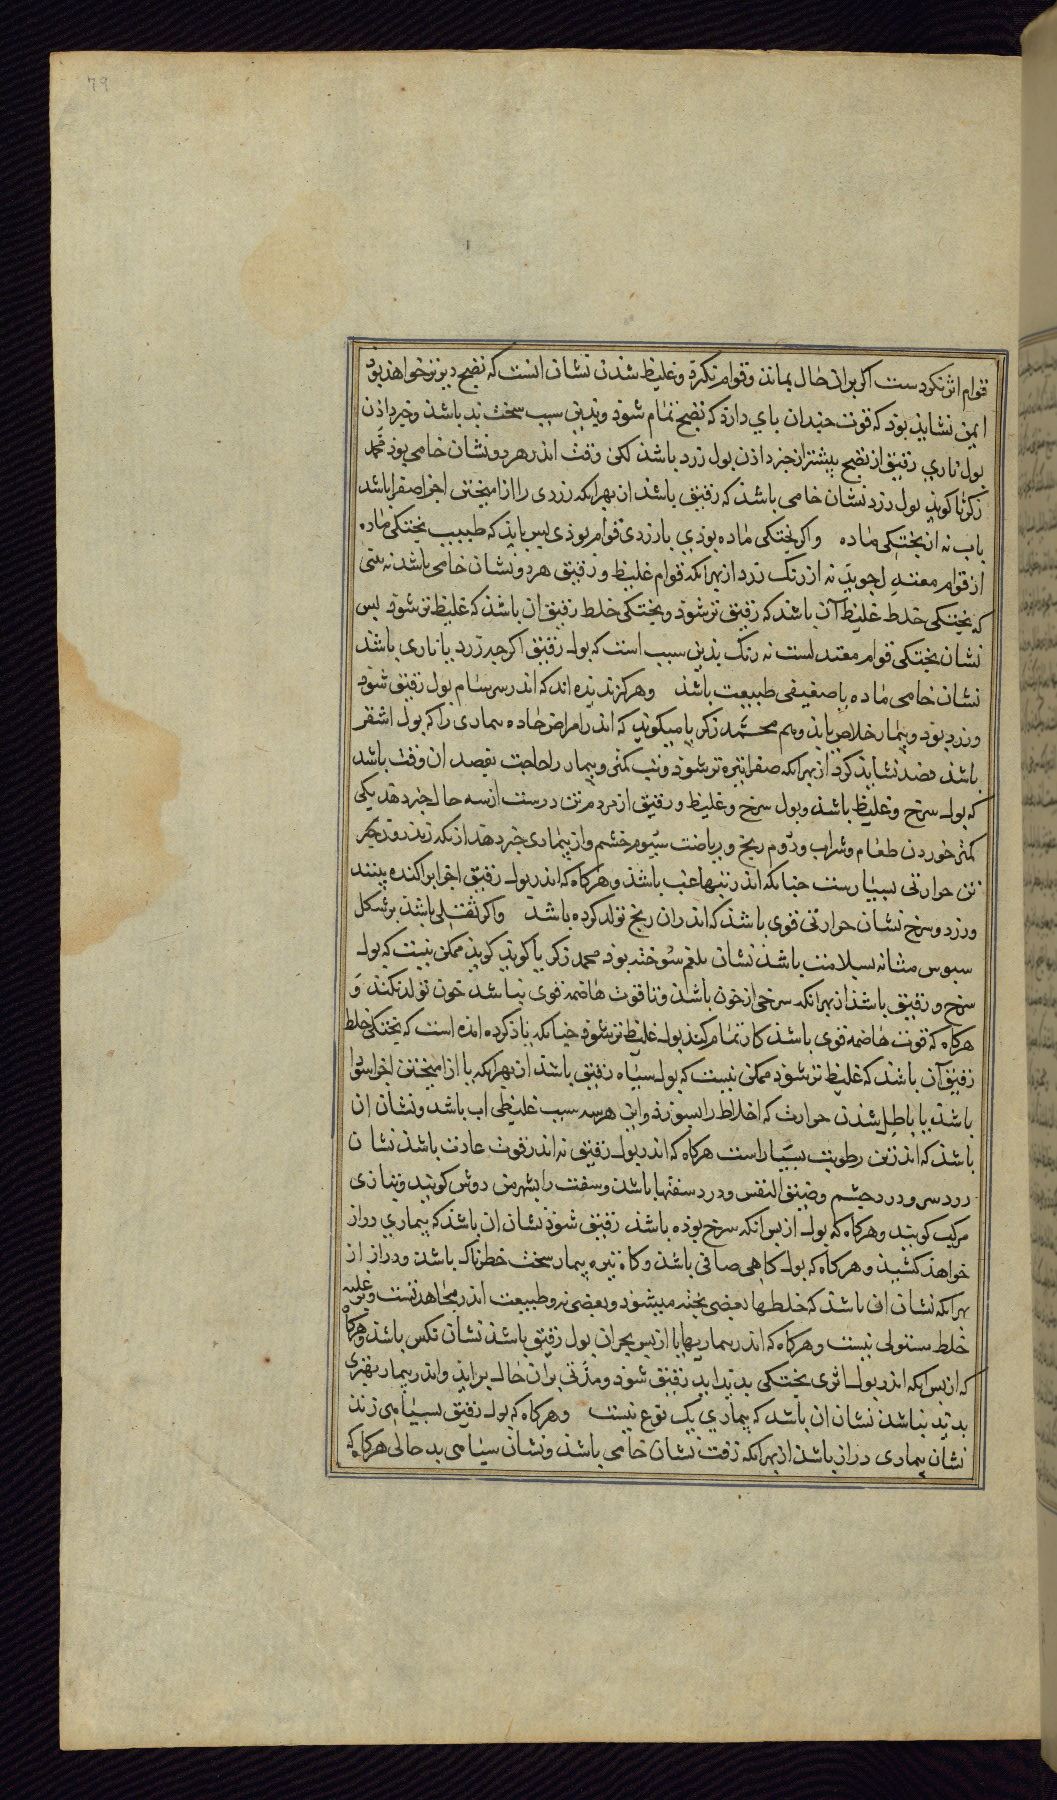 79
قوام اثر نکردست اکر بر ان حال بماند و قوام نکرد و غلیظ شدن نشان انست که نضج دیرتر خواهد بود
ایمن نشاید بود که قوت چندان بای دارد که نضج تمام شود و بدین سبب سخت بد باشد و خبر دادن
بول ناری رقیق از نضج بیشتر از خبر دادن بول زرد باشد لکن رقت اندر هر دو نشان خامی بود محمد
زکریا کوید بول زرد نشان خامی باشد که رقیق باشد از بهر انکه زردی را از امیختن اجزا صفرا باشد
باب نه از بختکی ماده واکر بختکی ماده بودی با زردی قوام بودی بس باید که طبیب بختکی ماده
از قوام معتدل جوید نه از رنک زرد از بهر انکه قوام غلیظ و رقیق هر دو نشان خامی باشد نه بینی
که بختکی خلط غلیظ آن باشد که رقیق تر شود و بختکی خلط رقیق ان باشد که غلیظ تر شود بس
نشان بختکی قوام معتدلست نه رنک بدین سبب است که بول رقیق اکر چه زرد یا ناری باشد
نشان خامی ماده یا ضعیفی طبیعت باشد وهرکز ندیده اند که اندر سرسام بول رقیق شود
و زرد بود و بیمار خلاص یابد و هم محمد زکریا میکوید که اندر امراض حاده بیماری را که بول اشقر
باشد فصد نشاید کرد از بهر انکه صفرا تیره تر شود و تب کمتر و بیمار را حاجت بفصد ان وقت باشد
که بول سرخ و غلیظ باشد و بول سرخ و غلیظ و رقیق از مردم تن درست از سه حال خبر دهد یکی
کمتر خوردن طعام و شراب و دوم رنج و ریاضت سیوم خشم و از بیماری خبر دهد از انکه
تن حرارتی بسیارست جنانکه اندر تبها غب باشد و هرکاه که اندر بول رقیق اجزا براکنده بینند
و زرد و سرخ نشان حرارتی قوی باشد که اندر ان رنج تولد کرده باشد واکر ثفلی باشد بر شکل
سبوس مثانه بسلامت باشد نشان بلغم سوخته بود محمد زکریا کوید کوید ممکن نیست که بول
سرخ و رقیق باشد از بهر انکه سرخی از خون باشد و تا قوت هاضمه قوی نباشد خون تولد نکند و
هرکاه که قوت هاضمه قوی باشد کار تمام کند بول غلیظ تر شود جنانکه یاد کرده امده است که بختکی خلط
رقیق آن باشد که غلیظ تر شود ممکن نیست که بول سیاه رقیق باشد از بهر انکه یا از امیختن اجزا سودا
باشد یا باطل شدن حرارت که اخلاط را بسوزد و این هر سه سبب غلیظی اب باشد و نشان ان
باشد که اندر تن رطوبت بسیار است هرکاه که اندر بول رقیق نه اندر قوت عادت باشد نشان
درد سر و درد چشم و ضیق النفس و درد سفتها باشد و سفت را بشهر من دوش کویند و بتازی
مرکب کویند و هرکاه که بول از بس انکه سرخ بوده باشد رقیق شود نشان ان باشد که بیماری دراز
خواهد کشید و هرکاه که بول کاهی صافی باشد و کاه تیره بیمار سخت خطرناک باشد و دراز از
بهر انکه نشان ان باشد که خلطها بعضی بخته میشود و بعضی نه و طبیعت اندر مجاهدتست و غلبه
خلط مستولی نیست و هرکاه که اندر بیماریها یا از بس بحران بول رقیق باشد نشان نکس باشد و هرکاه
که از بس انکه اندر بول اثری بختکی بدید اید رقیق شود و مدتی بران حال براید و اندر بیمار بهتری
بدید نباشد نشان ان باشد که بیماری یک نوع نیست وهرکاه که بول رقیق بسیاهی زند
نشان بیماری دراز باشد از بهر انکه رقت نشان خامی باشد و نشان سیاهی بد حالی هرکاه که